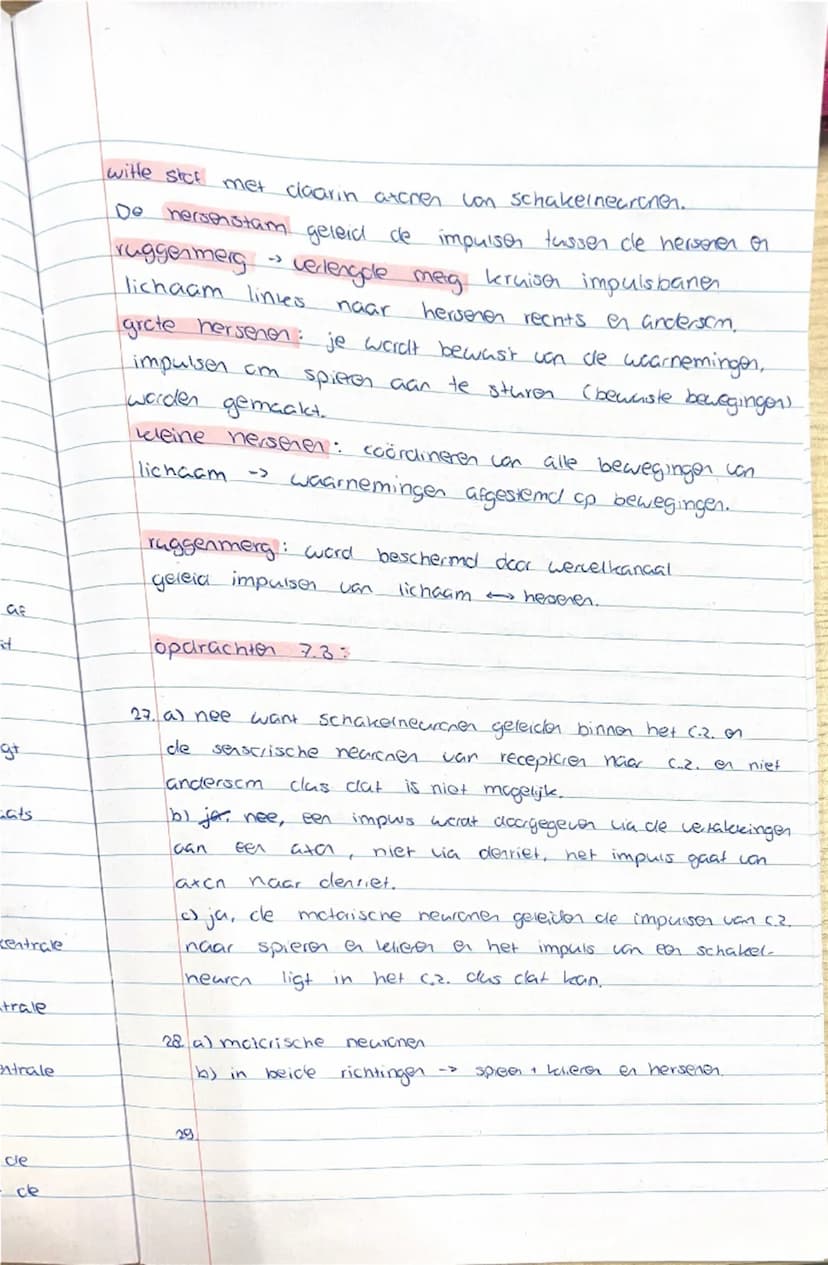 witte stof met daarin axonen van schakelneuronen.
De hersenstam geleid de impulsen tussen de hersenen en
ruggenmerg -> verlengde merg kruisen impulsbanen
lichaam links naar hersenen rechts en andersom.
grote hersenen: je wordt bewust van de waarnemingen,
impulsen om spieren aan te sturen (bewuste bewegingen)
worden gemaakt.
kleine hersenen: coördineren van alle bewegingen van
lichaam -> waarnemingen afgestemd op bewegingen.
ruggenmerg: word beschermd door wervelkanaal
geleid impulsen van lichaam <-> hersenen.
opdrachten 7.3:
27. a) nee want schakelneuronen geleiden binnen het c.z. en
de sensorische neuronen van receptoren naar c.z. en niet
andersom dus dat is niet mogelijk.
b) ja. nee, een impuls wordt doorgegeven via de vertakkingen
van een axon, niet via denriet, het impuls gaat van
axon naar denriet.
c) ja, de motorische neuronen geleiden de impulsen van c.z.
naar spieren en klieren en het impuls van een schakel-
neuron ligt in het c.z. dus dat kan.
28. a) motorische neuronen
b) in beide richtingen -> spieren + klieren en hersenen.
29.
af
gt
centrale
trale
ntrale
de
de